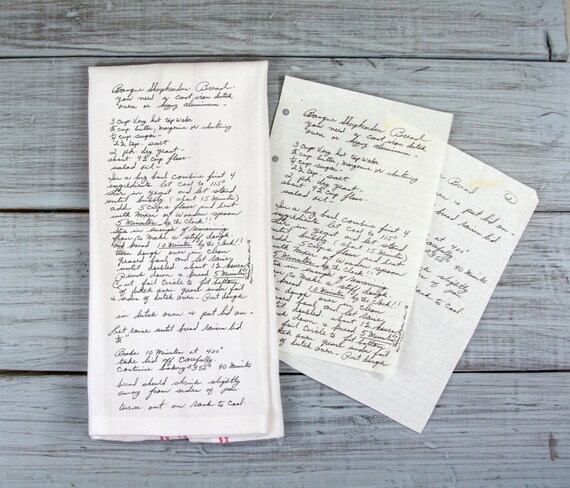 Basque Shepherders Bread.
you need a cast iron dutch
oven or heavy aluminum -
3 cup Very hot tap water
½ cup butter, margarine or shortning
½ cup sugar -
2½ tsp. salt
2 pk. dry yeast -
about 9½ cup flour -
salad oil -
In a big bowl combine first 4
ingredients let cool to 115°
stir in yeast and let stand
until bubbly. (about 15 Minutes)
add 5 cups flour and beat
with Mixer or Wooden spoon
5 Minutes (by the clock!!)
stir in enough of remaining
flour to make a stiff dough.
and knead 10 Minutes (by the clock!!
turn dough over in clean
greased bowl and let raise
until doubled. about 1½ hours
Punch down - & knead 5 Minutes
Cut foil Circle to fit bottom
of dutch oven. grease under foil
& sides of dutch oven - Put dough
in dutch oven & put lid on -
Let raise until bread raises lid
½"
Bake 10 Minutes at 400°
take lid off Carefully.
Continue baking 350° 40 Minutes
bread should shrink slightly
away from sides of pan
turn out on rack to cool.
Basque Shepherders Bread.
you need a cast iron dutch
oven or heavy aluminum -
3 cup Very hot tap water
½ cup butter, margarine or shortning
½ cup sugar -
2½ tsp. salt
2 pk. dry yeast -
about 9½ cup flour -
salad oil -
In a big bowl combine first 4
ingredients let cool to 115°
stir in yeast and let stand
until bubbly. (about 15 Minutes)
add 5 cups flour and beat
with Mixer or Wooden spoon
5 Minutes (by the clock!!)
stir in enough of remaining
flour to make a stiff dough
and knead 10 Minutes (by the clock!!
turn dough over in clean
greased bowl and let raise
until doubled. about 1½ hours
Punch down - & knead 5 Minutes
Cut foil Circle to fit bottom
of dutch oven. grease under foil
& sides of dutch oven - Put dough
Bread
& put lid on -
bread raises lid
400°
40 Minutes
slightly
pan
to cool.